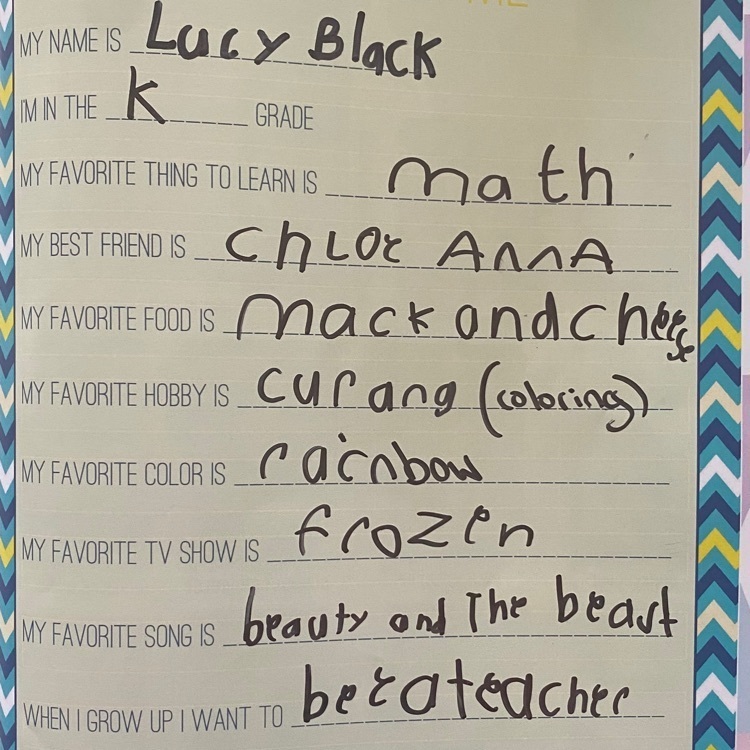 ME
MY NAME IS Lucy Black
I'M IN THE K GRADE
MY FAVORITE THING TO LEARN IS math
MY BEST FRIEND IS ChLoe AnnA
MY FAVORITE FOOD IS mack and cheese
MY FAVORITE HOBBY IS curang (coloring)
MY FAVORITE COLOR IS rainbow
MY FAVORITE TV SHOW IS frozen
MY FAVORITE SONG IS beauty and The beast
WHEN I GROW UP I WANT TO be a teacher